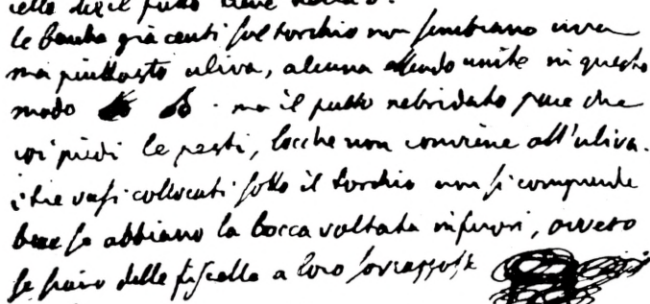 che il putto
le bacche giacenti sul torchio non sembrano uva
ma piuttosto uliva, alcuna essendo unite in questo
modo . ma il putto nebridato pare che
coi piedi le pesti, locche non conviene all'uliva.
i tre vasi collocati sotto il torchio non si comprende
bene se abbiano la bocca voltata infuori, ovvero
se siano delle fiscelle a loro